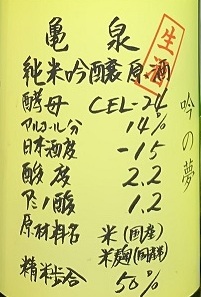 亀泉
生酒
純米吟醸原酒
吟の夢
酵母 CEL-24
アルコール分 14%
日本酒度 -15
酸度 2.2
アミノ酸 1.2
原材料名 米(国産)
米麹(国産米)
精米歩合 50%